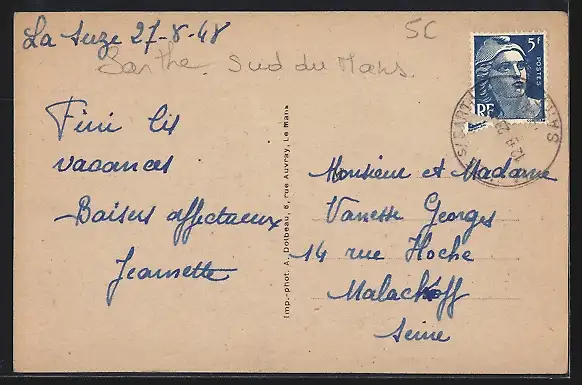 La Suze 27-8-48
5C
Sarthe. Sud du Mans.
5F
POSTES
RF
Fini les
vacances
Baisers affectueux
Jeannette
Imp.-phot. A. Dolbeau, 6, rue Auvray, Le Mans
Monsieur et Madame
Vanesse Georges
14 rue Hoche
Malackoff
Seine